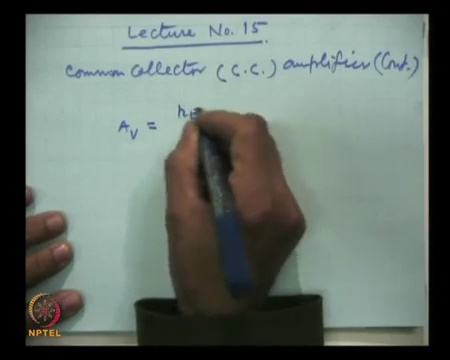 Lecture No. 15.
Common collector (C.C.) amplifier (Cont.)
A_V = r_E
NPTEL